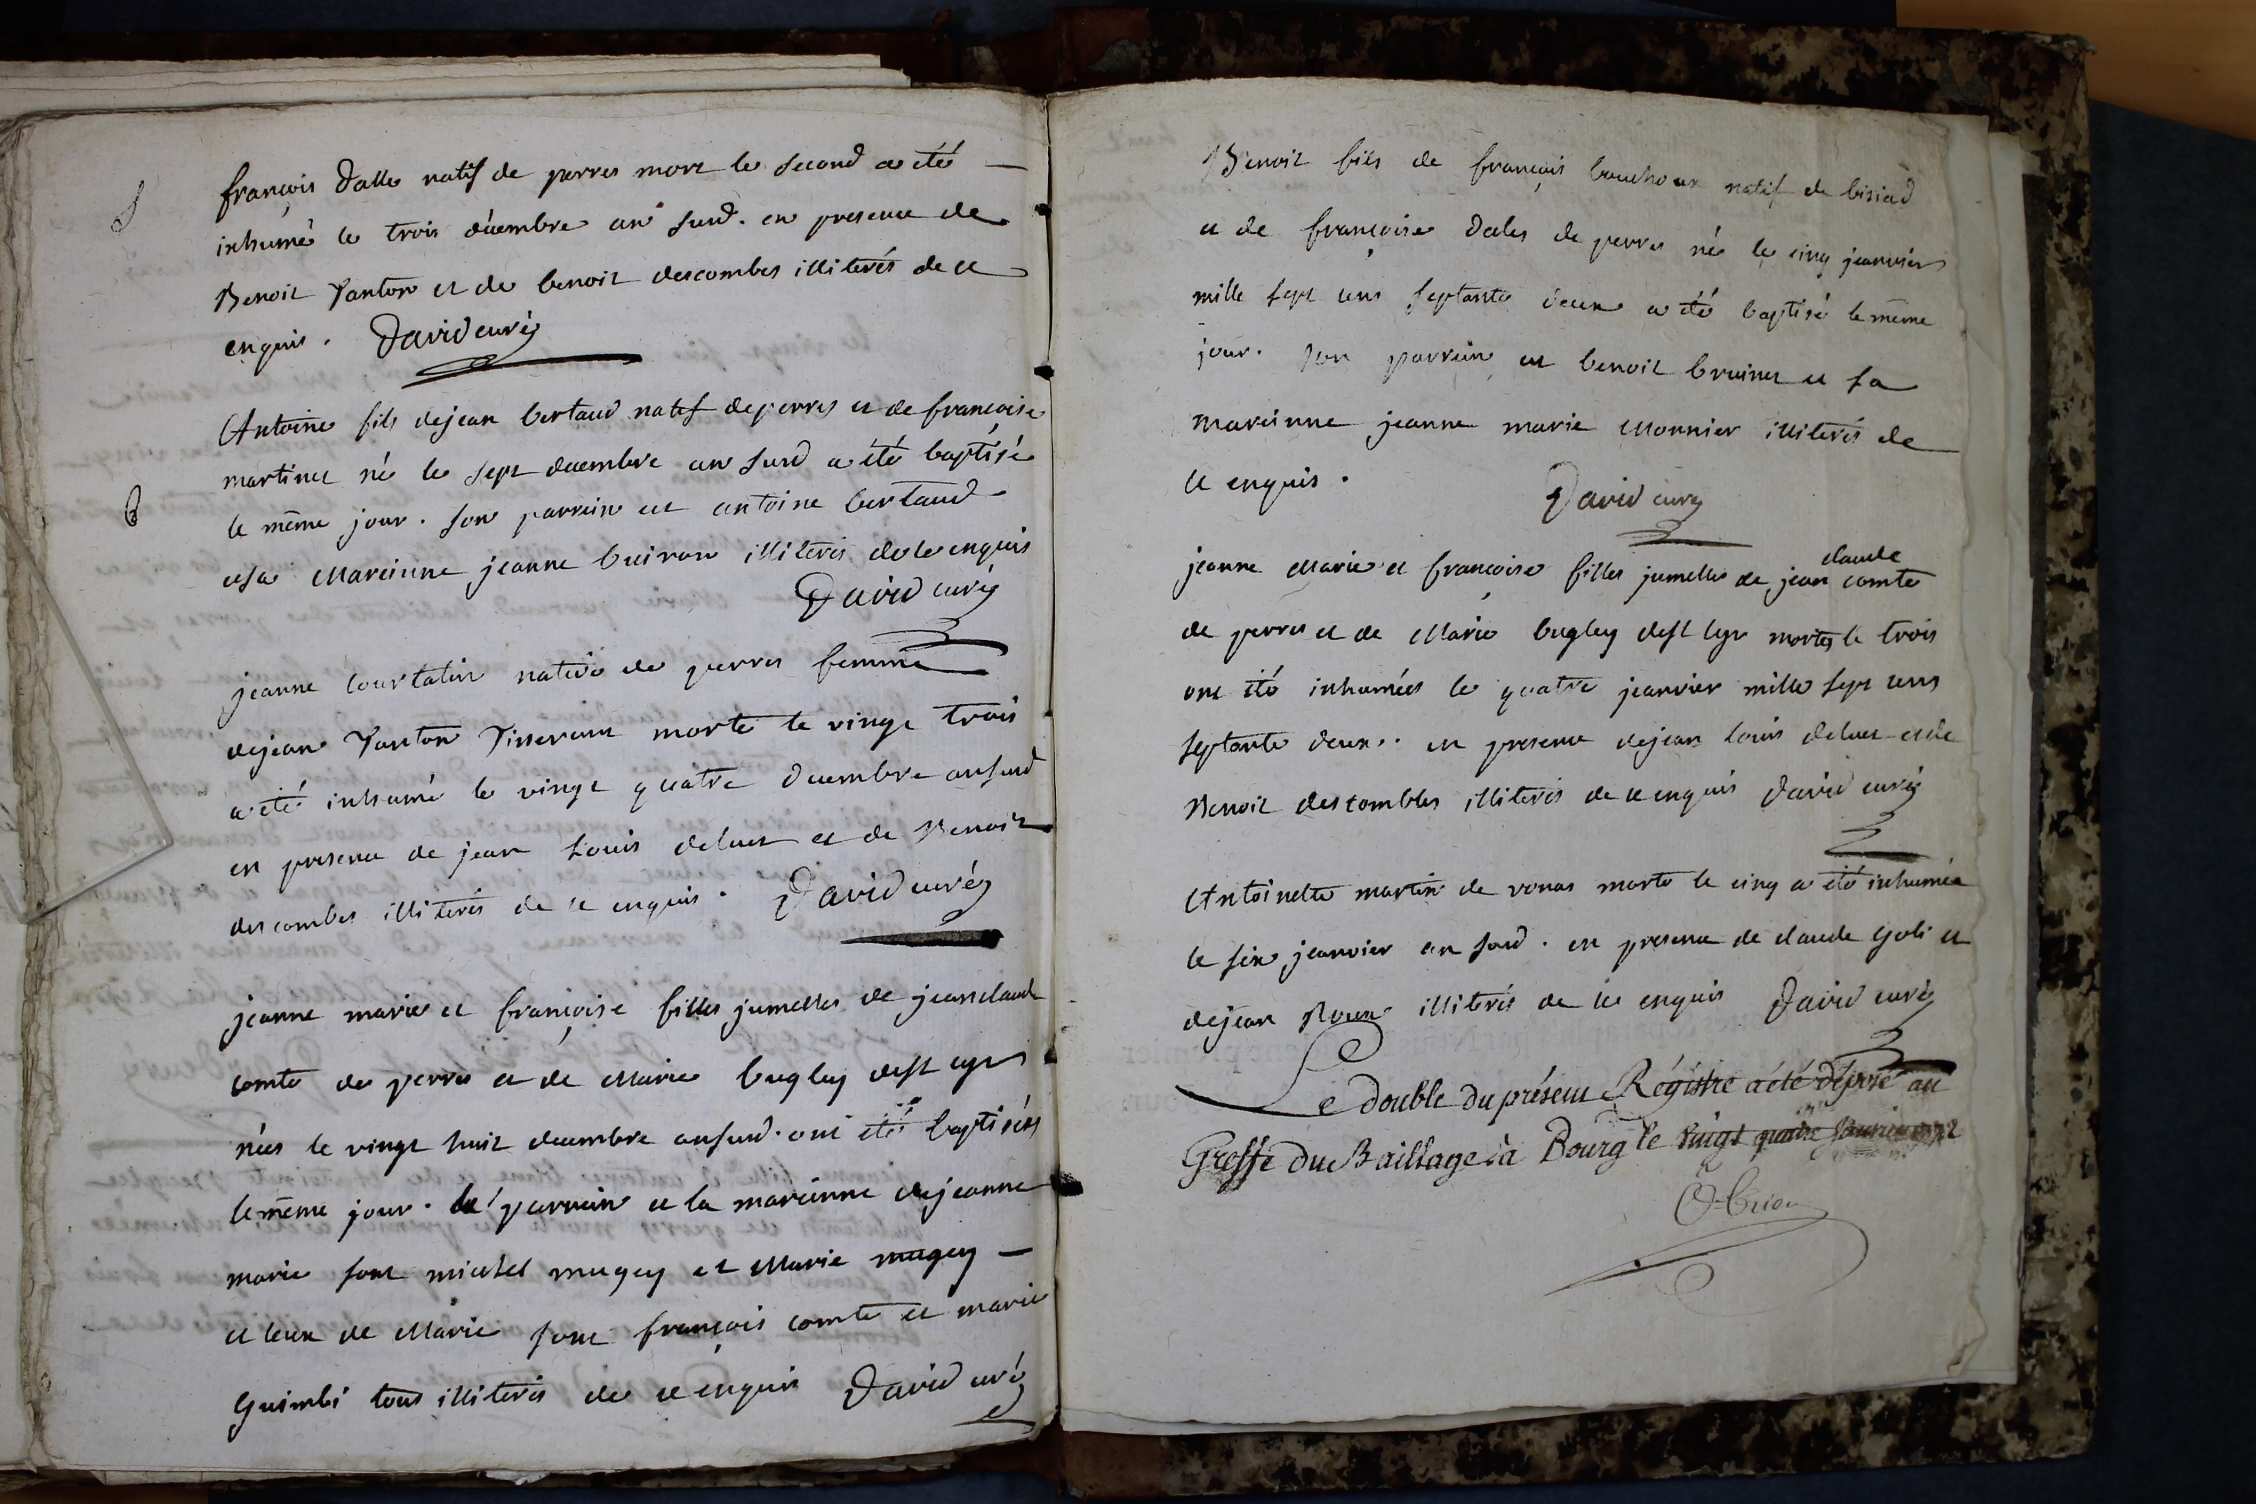 S
françois dalles natif de perres mort le second a été
inhumé le trois décembre an susd. en presence de
Benoit Panton et de benoit descombes illiterés de ce
enquis. David curé
Antoine fils de jean bertaud natif de perres et de françoise
martinet né le sept decembre an susd a été baptisé
B
le même jour. son parrein est antoine bertaud
et sa mareinne jeanne buiron illiterés de ce enquis
David curé
jeanne courtatin native de perres femme
de jean Panton Tisserant morte le vingt trois
a été inhumé le vingt quatre decembre an susd
en presence de jean Louis deluet et de Benoit
descombes illiterés de ce enquis. David curé
jeanne marie et françoise filles jumelles de jean claude
comte de perres et de Marie bugley de st cyr
nées le vingt huit decembre an susd. ont été baptisées
le même jour. le parrein et la mareinne de jeanne
marie sont michel mugey et Marie mugey
et ceux de Marie sont françois comte et marie
guimbi tous illiterés de ce enquis David curé
Benoit fils de françois bouchoux natif de bisiad
et de françoise dales de perres né le cinq jeanvier
mille sept cens septante deux a été baptisé le même
jour. son parrein est benoit bruinet et sa
mareinne jeanne marie Monnier illiterés de
ce enquis.
David curé
claude
jeanne Marie et françoise filles jumelles de jean comte
de perres et de Marie bugley de st cyr mortes le trois
ont été inhumées le quatre jeanvier mille sept cens
septante deux. en presence de jean Louis deluet et de
Benoit descombles illiterés de ce enquis David curé
Antoinette martin de vonas morte le cinq a été inhumée
le six jeanvier an susd. en presence de claude goli et
de jean Roux illiterés de ce enquis David curé
Le double du présent Régistre a été déposé au
Greffe du Baillage à Bourg le vingt quatre janvier 1772